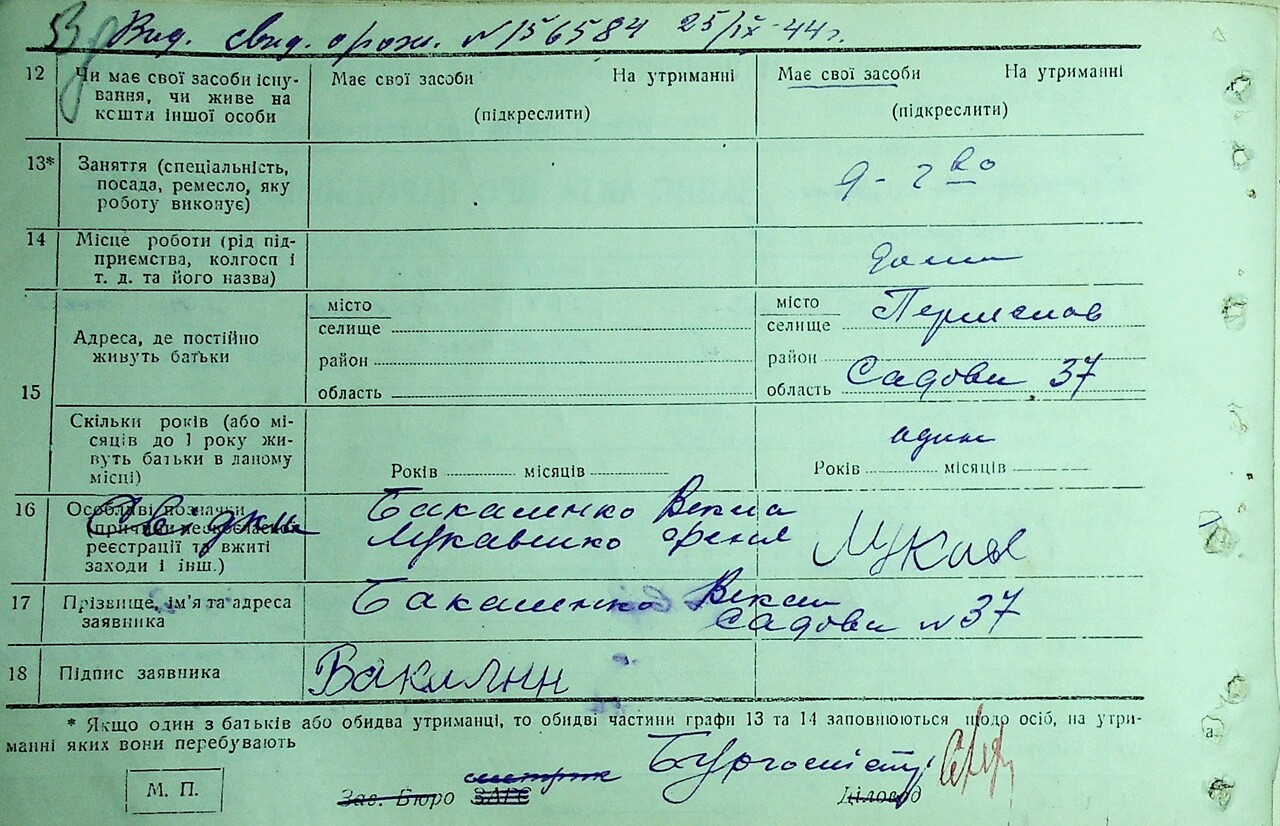 Вид. свид. о рожд. №156584 25/IX-44 г.
12 Чи має свої засоби існування, чи живе на кошти іншої особи
Має свої засоби На утриманні
(підкреслити)
Має свої засоби На утриманні
(підкреслити)
13* Заняття (спеціальність,
посада, ремесло, яку
роботу виконує)
д-г во
14 Місце роботи (рід під-
приємства, колгосп і
т. д. та його назва)
дома
15
Адреса, де постійно
живуть батьки
місто
селище
район
область
місто
селище
район
область
Садова 37
Скільки років (або мі-
сяців до 1 року жи-
вуть батьки в даному
місці)
Років місяців
один
Років місяців
16 Особливі позначки
реєстрації та вжиті
заходи і інш.)
Свідки
17 Прізвище, ім'я та адреса
заявника
Садова №37
18 Підпис заявника
* Якщо один з батьків або обидва утриманці, то обидві частини графи 13 та 14 заповнюються щодо осіб, на утри-
манні яких вони перебувають
М. П.
Зав. Бюро ЗАГС
Діловод